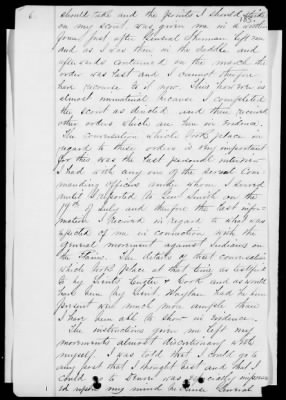 6.
should take and the points I should strike
on my scout, was given me in a written
form just after General Sherman left me
and as I was then in the saddle and
afterwards continued on the march the
order was lost and I cannot therefore
have recourse to it now. This however is
almost immaterial because I completed
the scout as directed and then received
other orders which are here in evidence.
The conversation which took place in
regard to these orders is very important
for this was the last personal interview
I had with any one of the several Com-
manding officers under whom I served
until I reported to Genl Smith on the
19th of July and therefore the last infor-
mation I received in regard to what was
expected of me in connection with the
general movement against Indians on
the Plains. The details of that conversation
which took place at that time as testified
to by Lieuts Custer & Cook and as would
have been by Lieut. had he been
present were much more ample than
I have been able to show in evidence.
The instructions given me left my
movements almost discretionary with
myself. I was told that I could go to
any post that I thought best and that I
could go to Denver was especially impress-
ed upon my mind because General